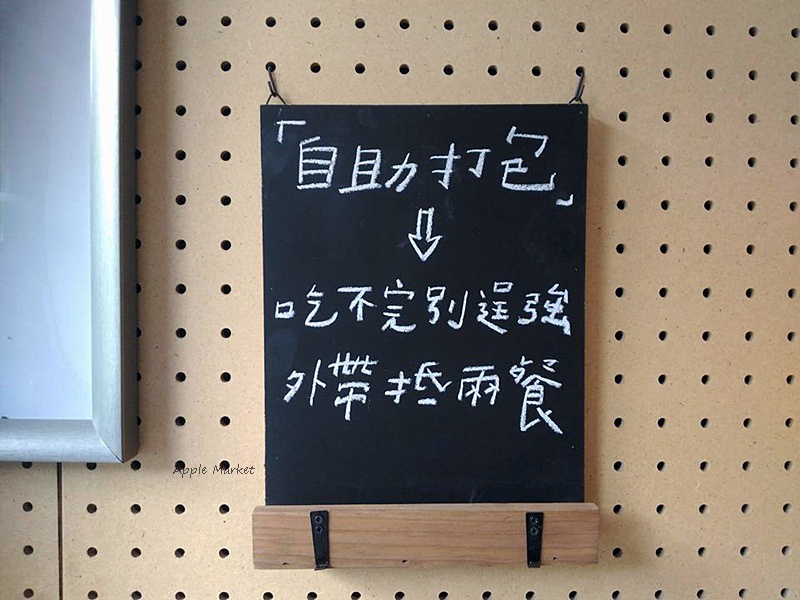 「自助打包」
⇩
吃不完別逞強
外帶抵兩餐
Apple Market